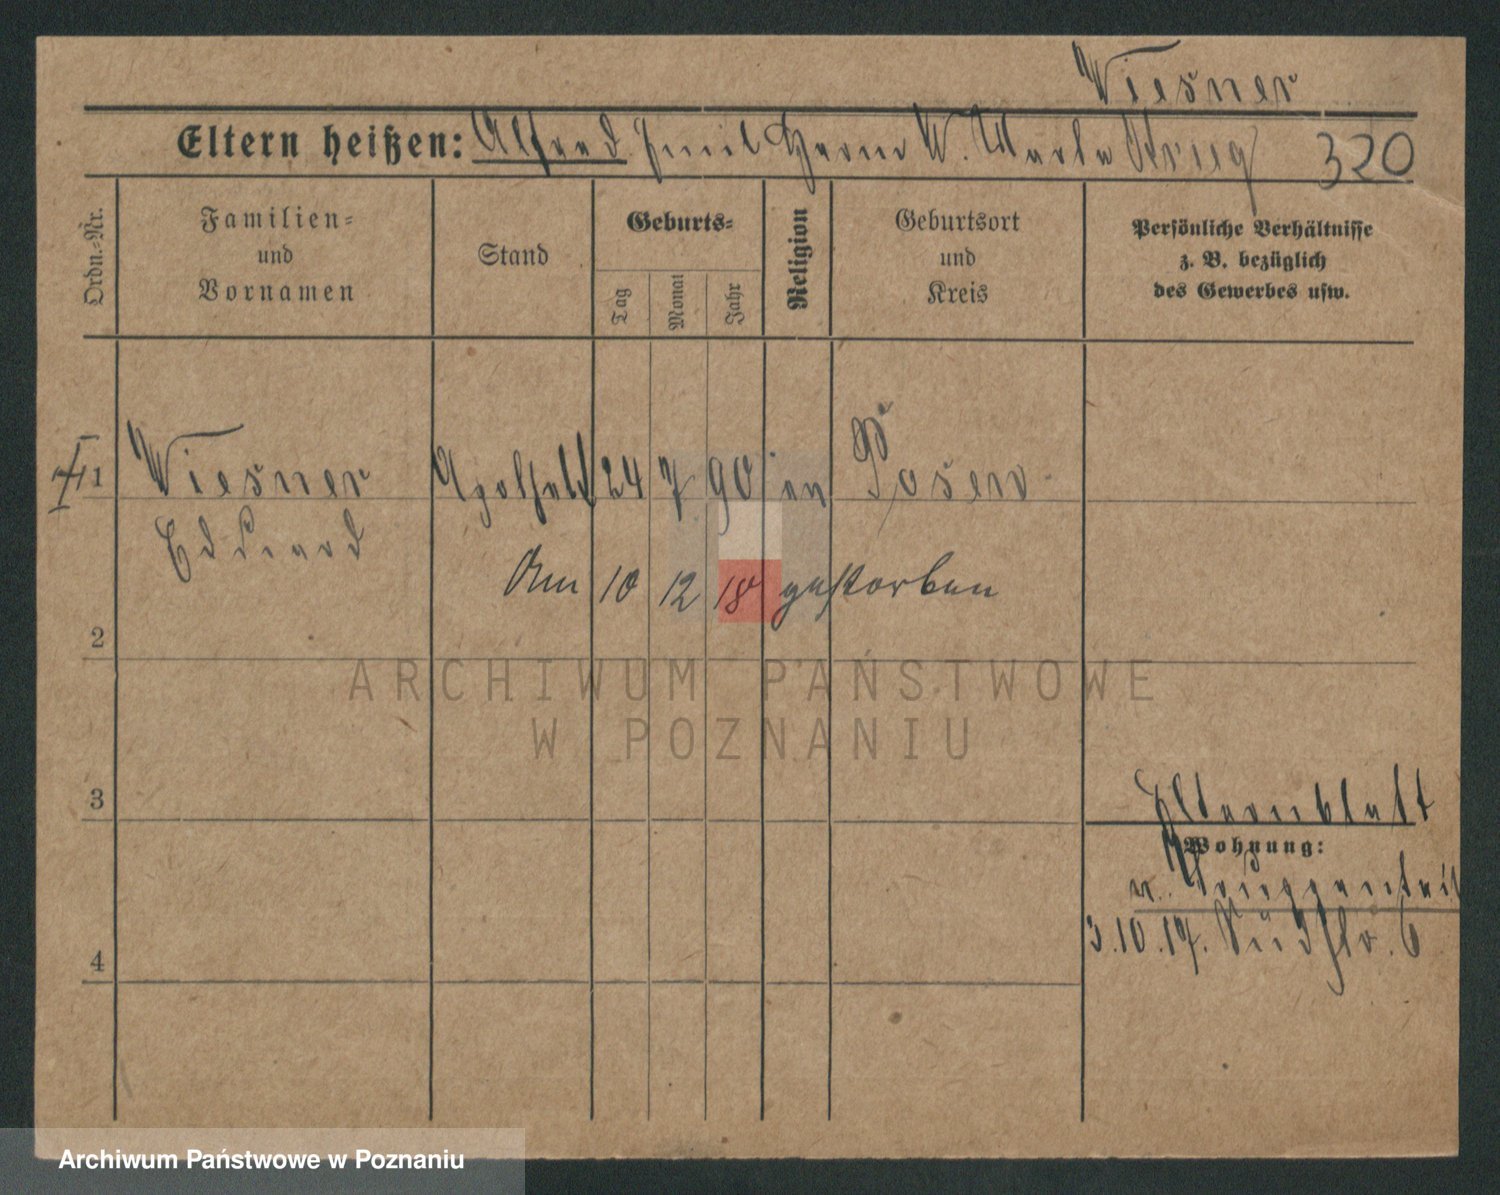 Wiesner
Eltern heißen: Alfred Emil Herm W. Krug 320
Ordn.-Nr.
Familien-
und
Vornamen
Stand
Geburts-
Tag
Monat
Jahr
Religion
Geburtsort
und
Kreis
Persönliche Verhältnisse
z. B. bezüglich
des Gewerbes usw.
1 Wiesner 24 7 90 ev Posen
Eduard
Am 10 12 18 gestorben
2
3
4
Elternblatt
Wohnung:
v.
3.10.17. 6
ARCHIWUM PAŃSTWOWE
W POZNANIU
Archiwum Państwowe w Poznaniu